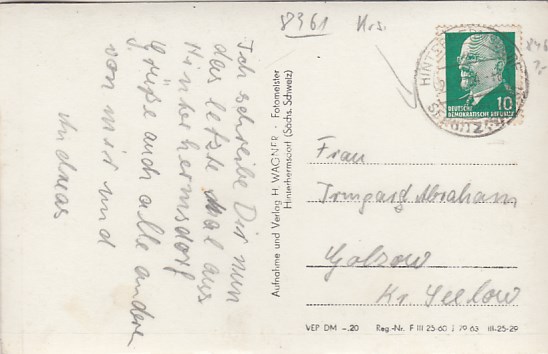 8361 Krs.
Ich schreibe Dir nun
das letzte Mal aus
Hinterhermsdorf
Grüße auch alle andere
von mir und
Andreas
Aufnahme und Verlag H. WAGNER · Fotomeister
Hinterhermsdorf (Sächs. Schweiz)
DEUTSCHE
DEMOKRATISCHE REPUBLIK
10
Frau
Irmgard Abraham
Golzow
Kr. Seelow
VEP DM -.20 Reg.-Nr. F III 25-60 / 79 63 III-25-29